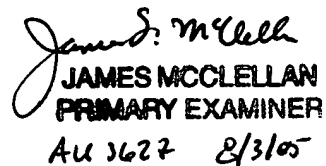 James S. McClella
JAMES MCCLELLAN
PRIMARY EXAMINER
AU 3627 8/3/05